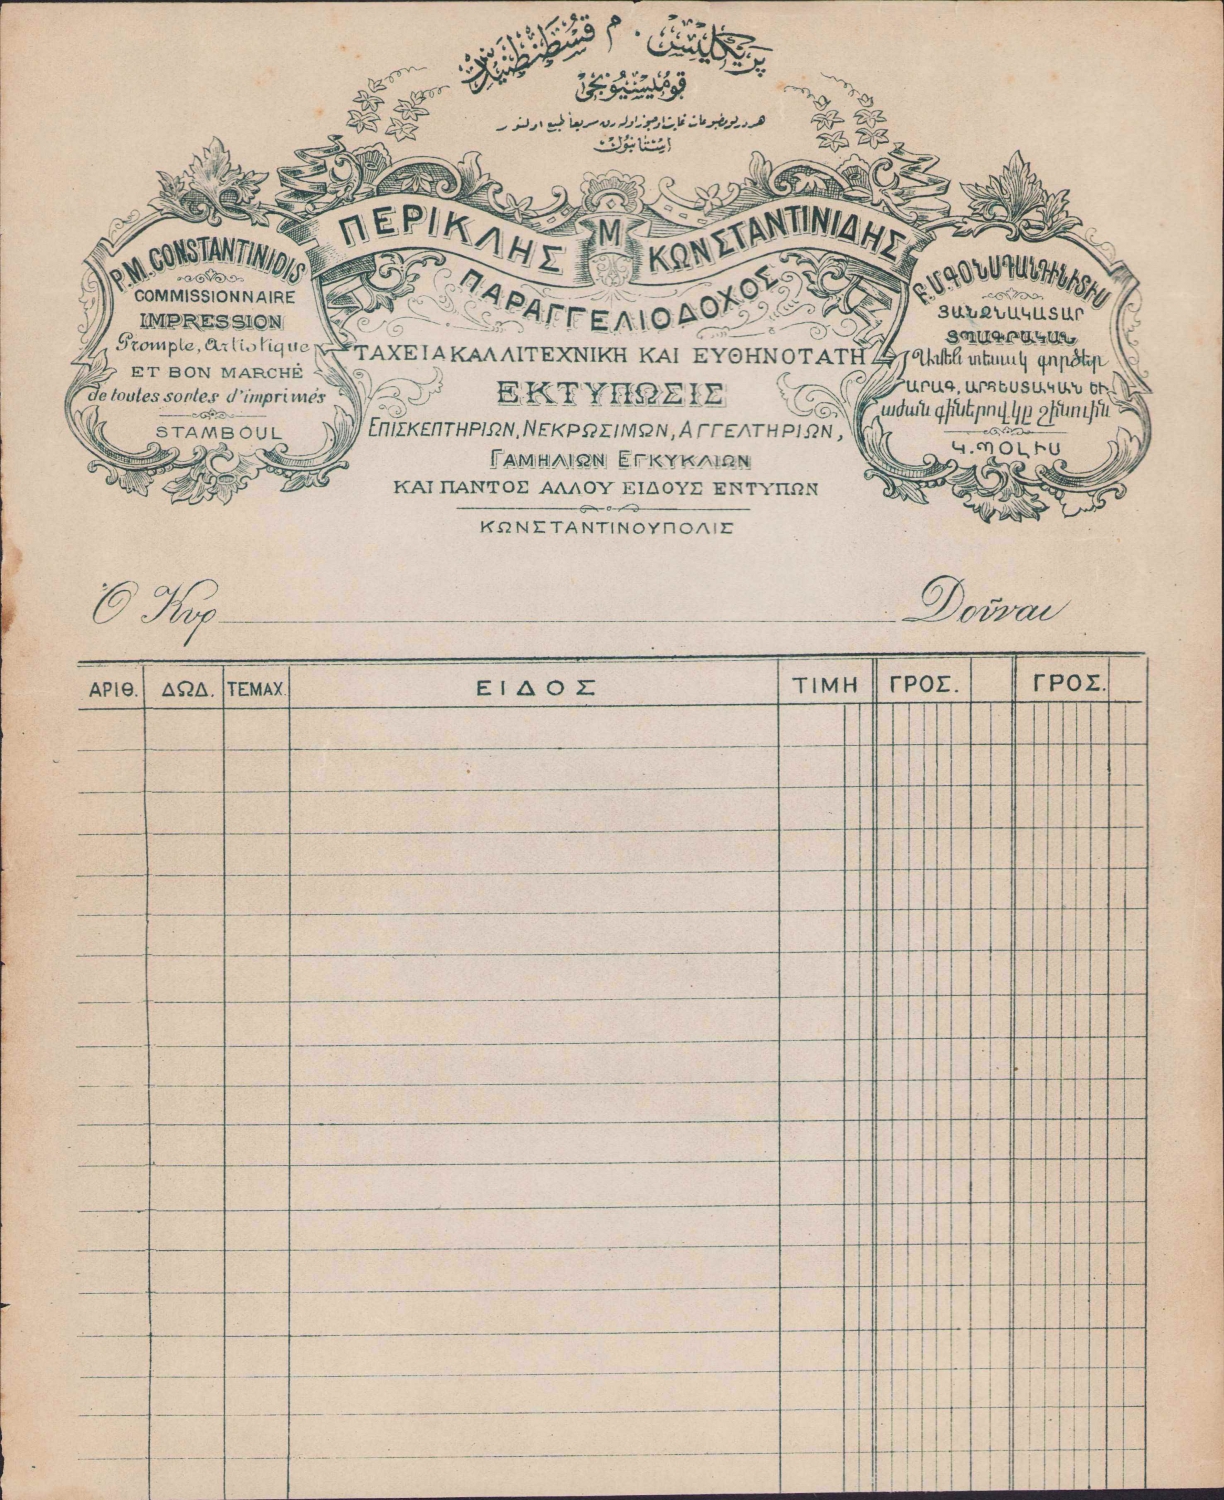 پريكليس . م قسطنطنيدس
قومليسيونجى
هر درلو مطبوعات غايت اوجوز اوله رق سريعاً طبع اولنور
استانبول
P. M. CONSTANTINIDIS
COMMISSIONNAIRE
IMPRESSION
Prompte, Artistique
ET BON MARCHÉ
de toutes sortes d'imprimés
STAMBOUL
ΠΕΡΙΚΛΗΣ Μ ΚΩΝΣΤΑΝΤΙΝΙΔΗΣ
ΠΑΡΑΓΓΕΛΙΟΔΟΧΟΣ
ΤΑΧΕΙΑ ΚΑΛΛΙΤΕΧΝΙΚΗ ΚΑΙ ΕΥΘΗΝΟΤΑΤΗ
ΕΚΤΥΠΩΣΙΣ
ΕΠΙΣΚΕΠΤΗΡΙΩΝ, ΝΕΚΡΩΣΙΜΩΝ, ΑΓΓΕΛΤΗΡΙΩΝ,
ΓΑΜΗΛΙΩΝ ΕΓΚΥΚΛΙΩΝ
ΚΑΙ ΠΑΝΤΟΣ ΑΛΛΟΥ ΕΙΔΟΥΣ ΕΝΤΥΠΩΝ
ΚΩΝΣΤΑΝΤΙΝΟΥΠΟΛΙΣ
Բ. Մ. ԳՕՆՍԴԱՆԴԻՆԻՏԻՍ
ՅԱՆՁՆԱԿԱՏԱՐ
ՏՊԱԳՐԱԿԱՆ
Ամեն տեսակ գործեր
ԱՐԱԳ, ԱՐՒԵՍՏԱԿԱՆ ԵՒ
աժան գիներով կը շինուին
Կ. ՊՕԼԻՍ
Ὁ Κυρ Δοῦναι
ΑΡΙΘ. ΔΩΔ. ΤΕΜΑΧ. ΕΙΔΟΣ ΤΙΜΗ ΓΡΟΣ. ΓΡΟΣ.